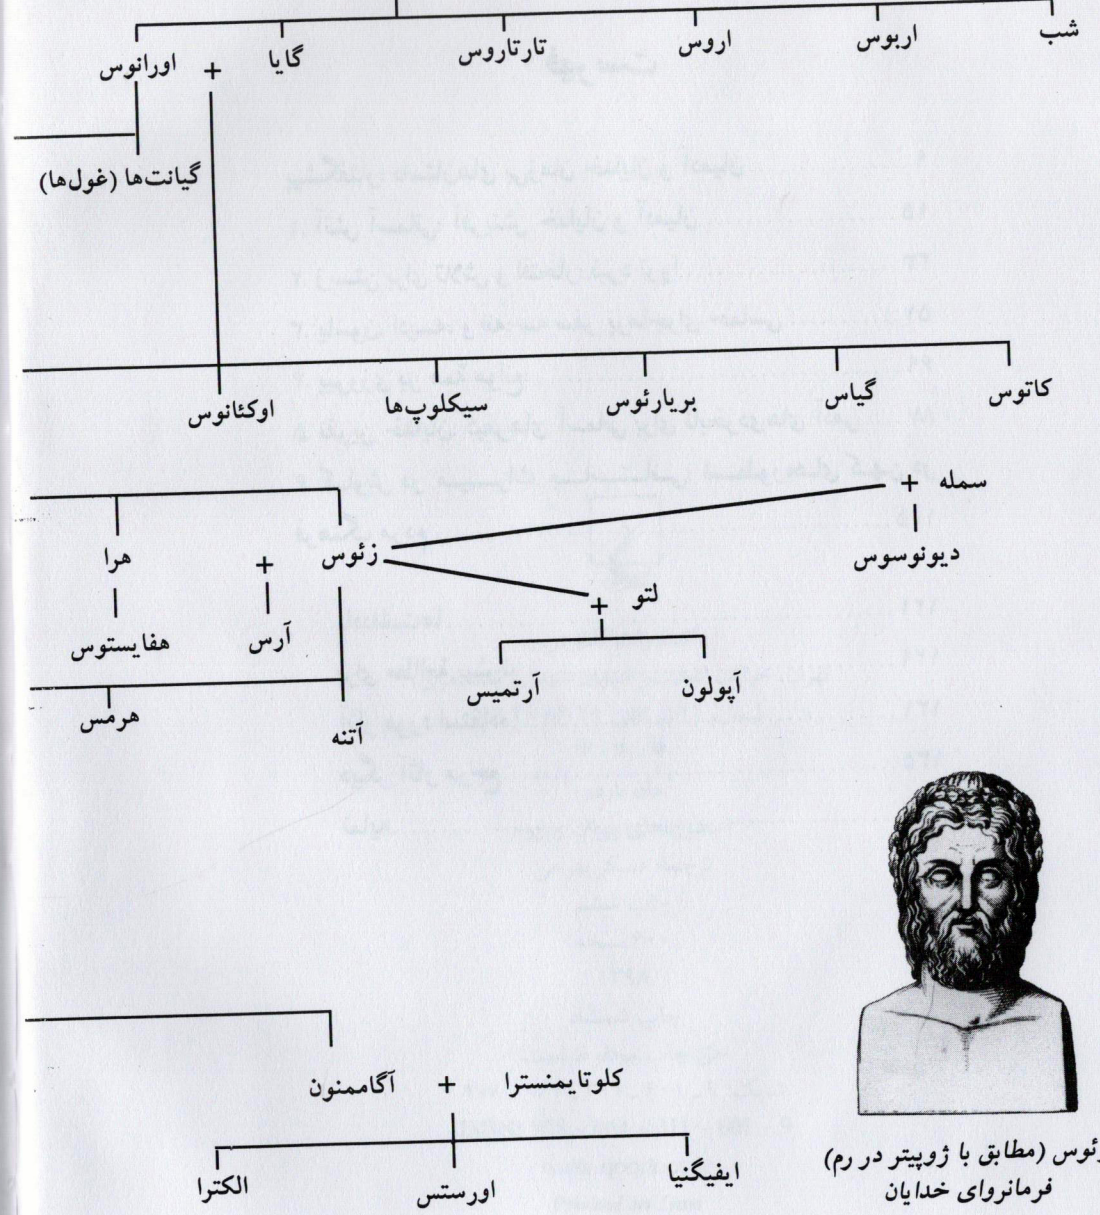 شب اربوس اروس تارتاروس گایا + اورانوس
گیانت‌ها (غول‌ها)
کاتوس گیاس بریارئوس سیکلوپ‌ها اوکئانوس
سمله +
دیونوسوس
زئوس + هرا
لتو +
آرس هفایستوس
آپولون آرتمیس
هرمس
آتنه
کلوتایمنسترا + آگاممنون
ایفیگنیا اورستس الکترا
ئوس (مطابق با ژوپیتر در رم)
فرمانروای خدایان